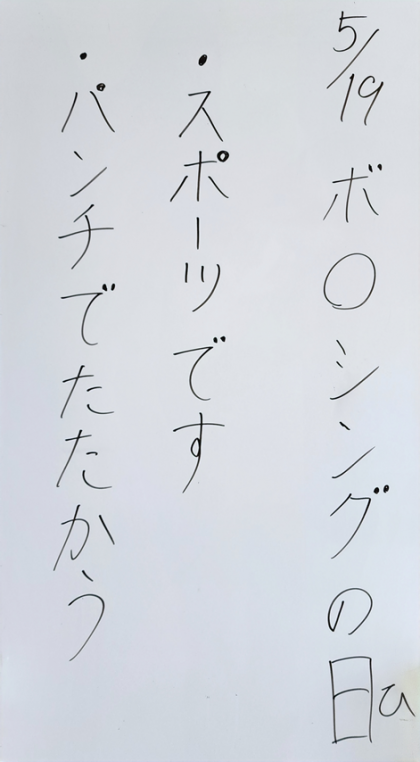 5/19 ボ〇シングの日ひ
・スポーツです
・パンチでたたかう